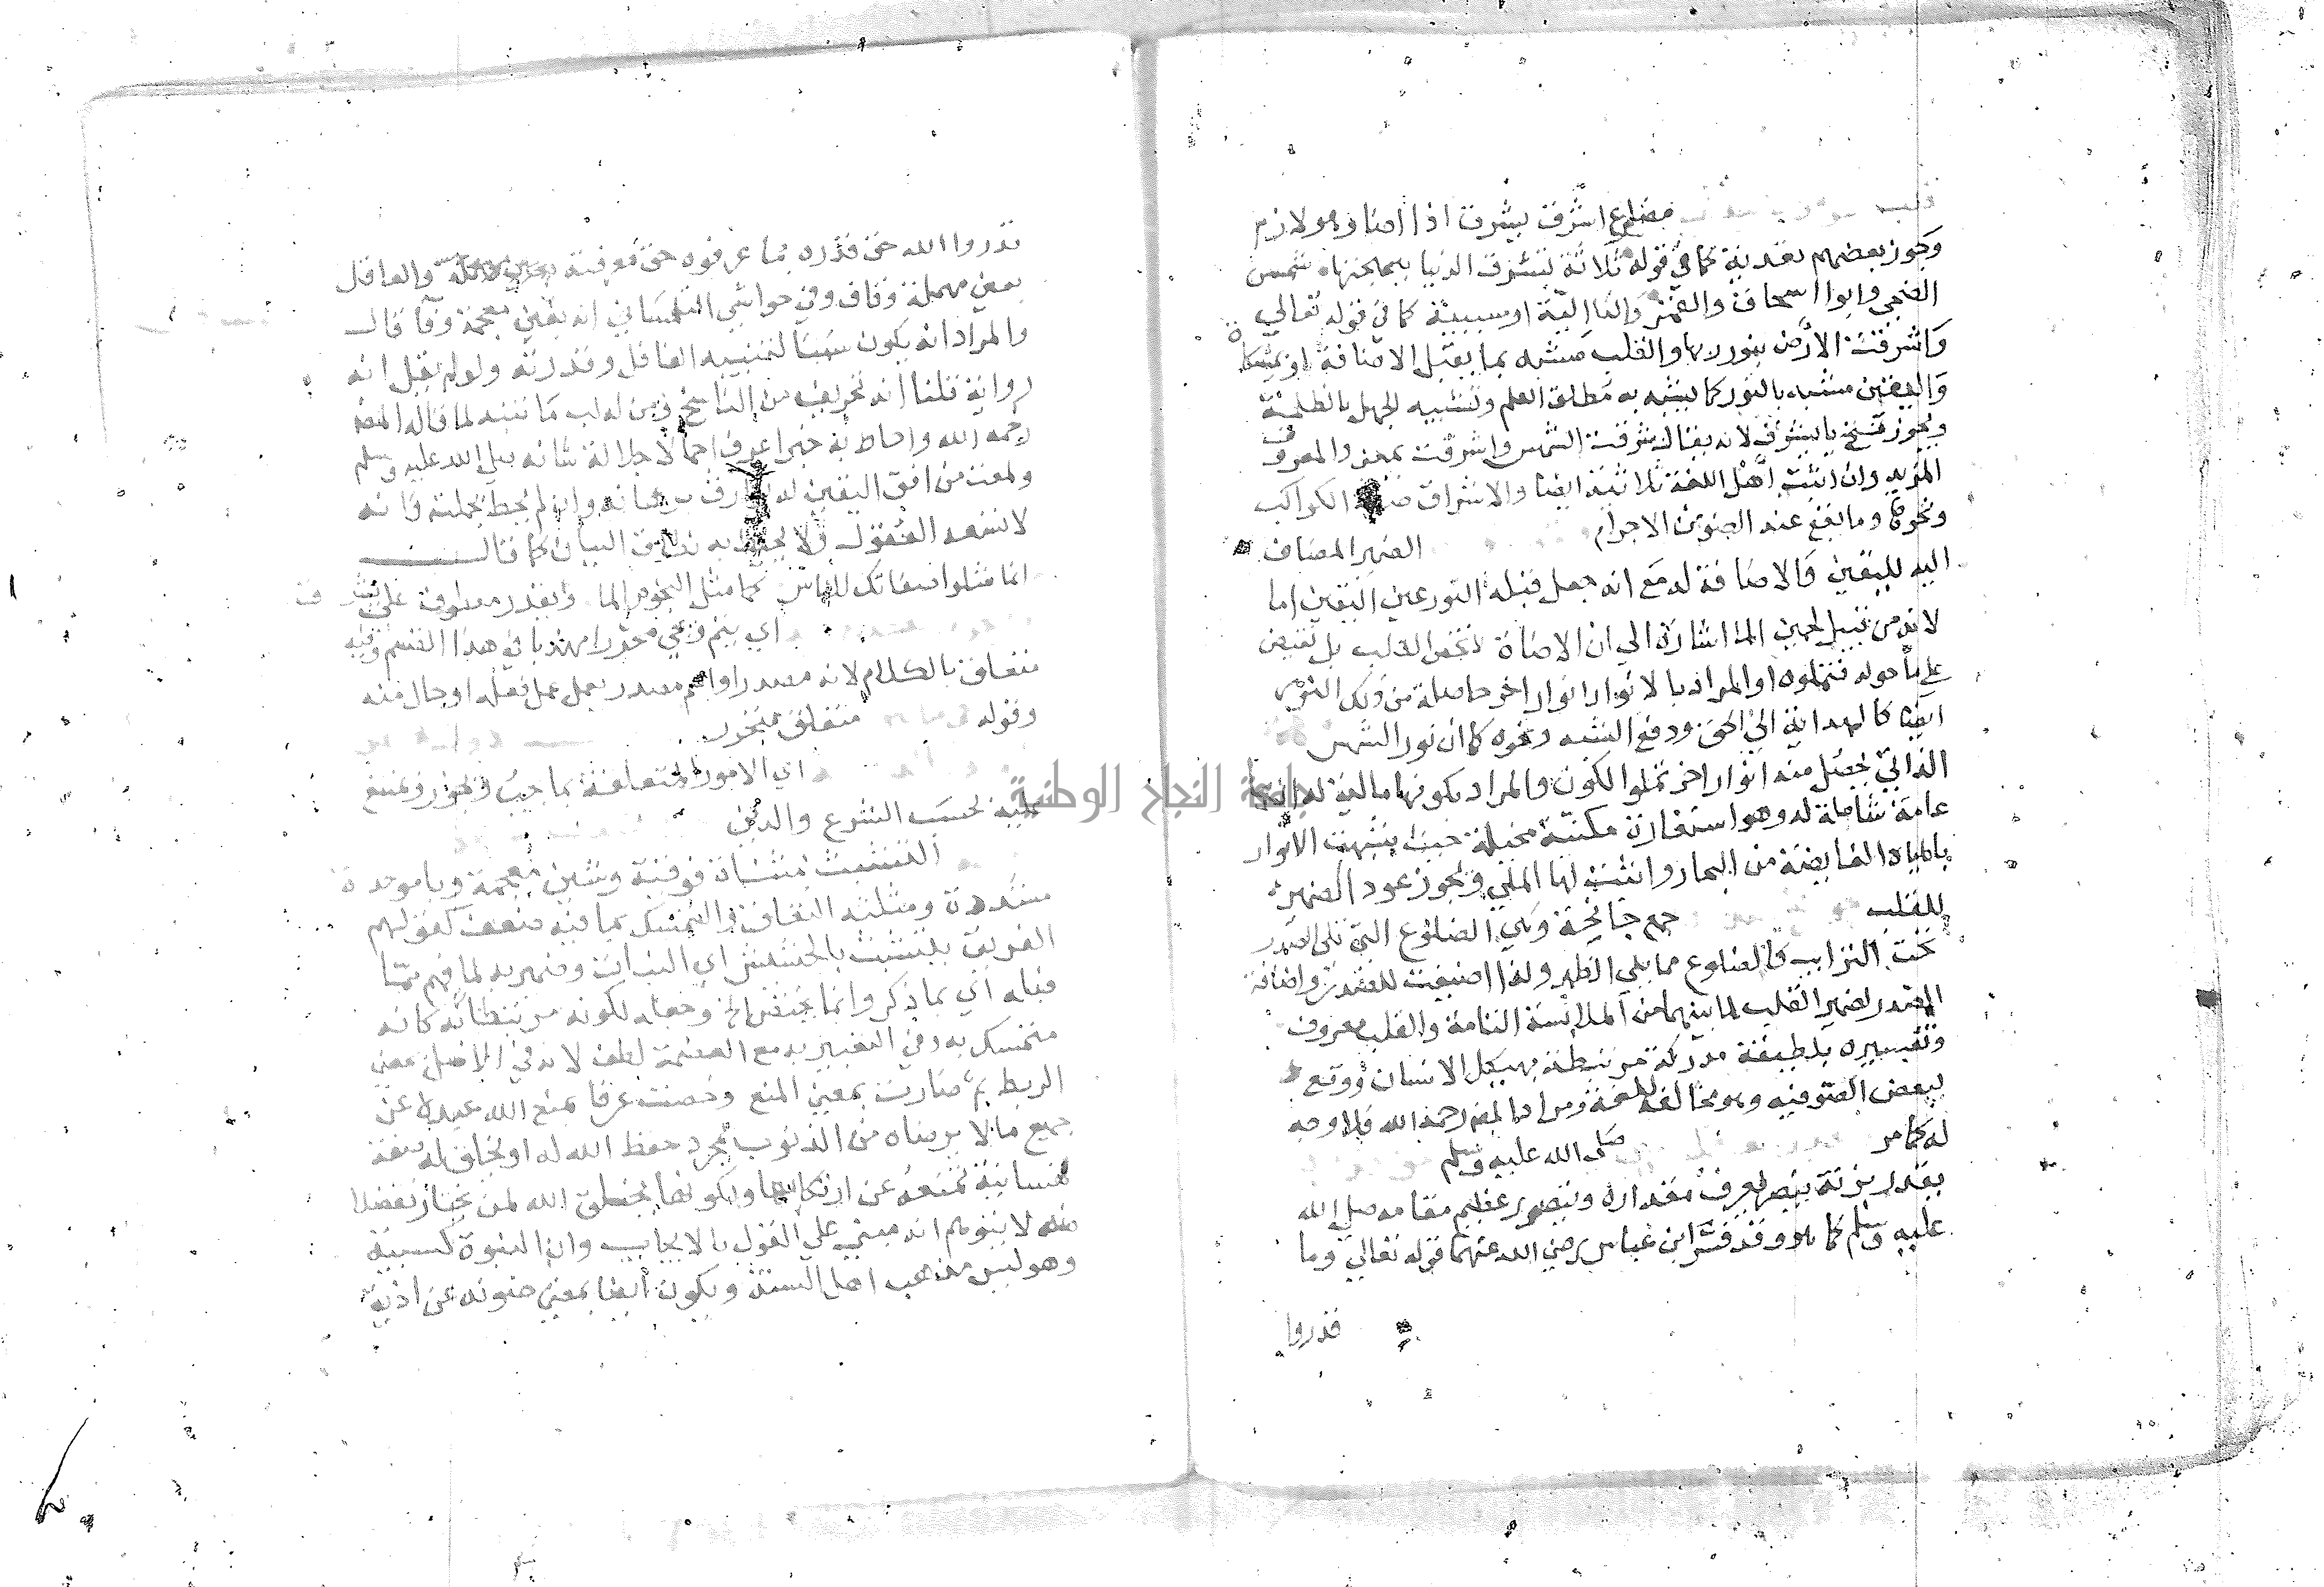 مضارع اشرق يشرق اذا اضا وهو لازم
وجوز بعضهم تعديته كما في قوله ثلاثة تشرق الدنيا ببهجتها شمس
الضحى وابوا اسحاق والقمر والفا الية او سببية كما في قوله تعالي
واشرقت الارض بنور ربها والقلب مشبه بما يقبل الاضافة او بمشكاة
واليقين مشبه بالنور كما يشبه به مطلق العلم وتشبيه الجهل بالظلمة
ويجوز فتح يا يشرق لانه يقال شرقت الشمس واشرقت بمعنى والمعروف
المزيد وان اثبت اهل اللغة ثلاثيه ايضا والاشراق الكواكب
ونحوها وما يقع عنه الضو من الاجرام الضمير المضاف
اليه لليقين والاضافة له مع انه جعل قبله النور عين اليقين اما
لانه من قبيل لجين الما اشارة الي ان الاضاة لا تخص القلب بل تفيض
علي ما حوله فتملوه او المراد بالانوار انوار اخر حاصلة من ذلك النور
ايضا كالهداية الي الحق ودفع الشبه ونحوه كما ان نور الشمس
الذاتي يحصل منه انوار اخر تملوا الكون والمراد بكونها مالية له انها
عامة شاملة له وهو استعارة مكنية مخيلة حيث شبهت الانوار
بالمياه الفايضة من البحار واثبت لها الملي ويجوز عود الضمير
للقلب جمع جانحة وهي الضلوع التي تلي الصدر
تحت الترايب كالضلوع مما يلي الظهر ولذا اضيفت للصدر واضافة
الصدر لضمير القلب لما بينهما من الملابسة التامة والقلب معروف
وتفسيره بلطيفة مدركة مرتبطة بهيكل الانسان وقع
لبعض الصوفيه وهو مخالف للغة ومراد المص رحمه الله فلا وجه
له كما مر صلى الله عليه وسلم
بقدر بزنة يبصر يعرف مقداره ويتصور عظيم مقامه صلي الله
عليه وسلم كما هو وقد فسر ابن عباس رضي الله عنهما قوله تعالي وما
قدروا
قدروا الله حق قدره بما عرفوه حق معرفته والعاقل
بعين مهملة وقاف وفي حواشي التلمساني انه بغين معجمة وفا قال
والمراد انه يكون سببا لتنبيه الغافل وقدرته ولو لم يقل انه
رواية قلنا انه تحريف من الناسخ فمن له لب ما تنبه لما قاله المص
رحمه الله واحاط به خبرا عرف اجمالا جلالة شانه صلي الله عليه وسلم
ولمعت من افق اليقين له وان لم يحط بجملته فانه
لا تسعه العقول ولا يحيط به نطاق البيان كما قال
انما مثلوا صفاتك للناس كما مثل النجوم الما ويقدر معطوف على يشرق
اي يتم في محررا مهذبا في هذا القسم وفيه
متعلق بالكلام لانه مصدر او اسم مصدر يعمل عمل فعله او حال منه
وقوله متعلق بتحرر
اي الامور المتعلقة بما يجب ويجوز ويمتنع
عليه بحسب الشرع والدين
التشبث بمثناة فوقية وشين معجمة وباموحدة
مشددة ومثلثه التعلق والتمسك بما فيه ضعف كقولهم
الغريق يتشبث بالحشيش اي النبات وضمير به لما فهم مما
قبله اي بما ذكر وانما يختص الخ وجعله لكونه مرتبطا به كانه
متمسك به وفي التعبير به مع العصمة لطف لانه في الاصل معنى
الربط ثم صارت بمعني المنع وخصت عرفا بمنع الله عبده عن
جميع ما لا يرضاه من الذنوب بمجرد حفظ الله له او بخلق له صفة
نفسانية تمنعه عن ارتكابها وبكونها بخلق الله لمن يختار تفضلا
منه لا يتوهم انه مبني علي القول بالايجاب وان النبوة كسبية
وهو ليس مذهب اهل السنة ويكون ايضا بمعني صونه عن اذية
جامعة النجاح الوطنية